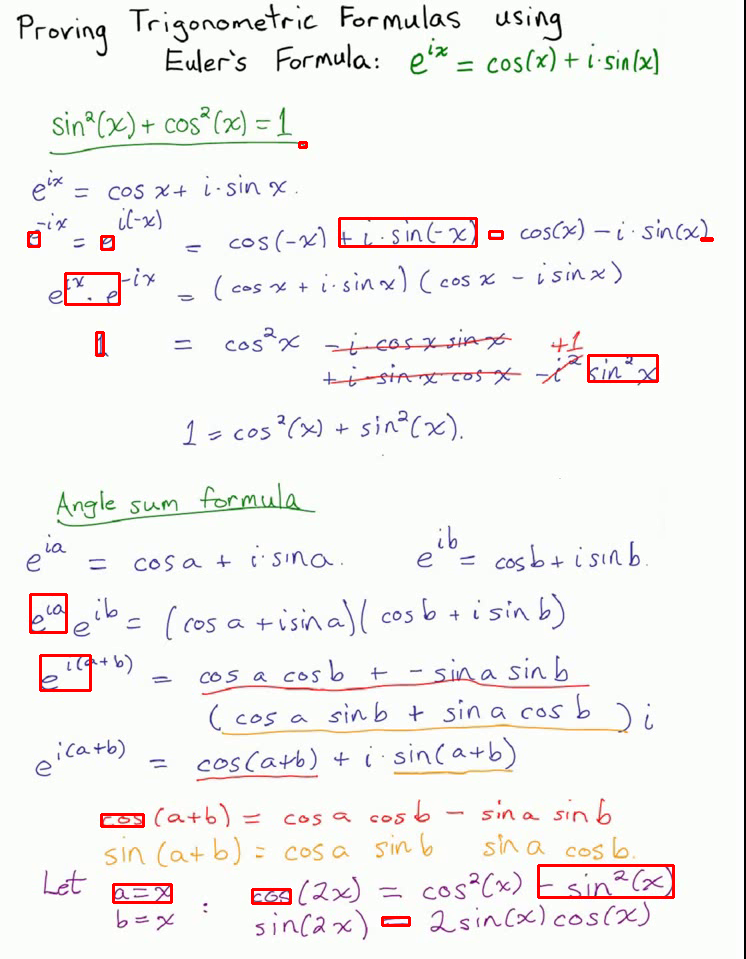 Proving Trigonometric Formulas using
Euler's Formula: e^{ix} = cos(x) + i·sin(x)
sin²(x) + cos²(x) = 1
e^{ix} = cos x + i·sin x.
e^{-ix} = e^{i(-x)} = cos(-x) + i·sin(-x) = cos(x) - i·sin(x)
e^{ix}·e^{-ix} = (cos x + i·sin x)(cos x - i sin x)
1 = cos²x - i·cos x sin x +1
+ i·sin x cos x - i² sin²x
1 = cos²(x) + sin²(x).
Angle sum formula
e^{ia} = cos a + i·sin a. e^{ib} = cos b + i sin b.
e^{ia} e^{ib} = (cos a + i sin a)(cos b + i sin b)
e^{i(a+b)} = cos a cos b + - sin a sin b
(cos a sin b + sin a cos b) i
e^{i(a+b)} = cos(a+b) + i·sin(a+b)
cos(a+b) = cos a cos b - sin a sin b
sin(a+b) = cos a sin b sin a cos b.
Let a = x : cos(2x) = cos²(x) - sin²(x)
b = x sin(2x) 2 sin(x) cos(x)